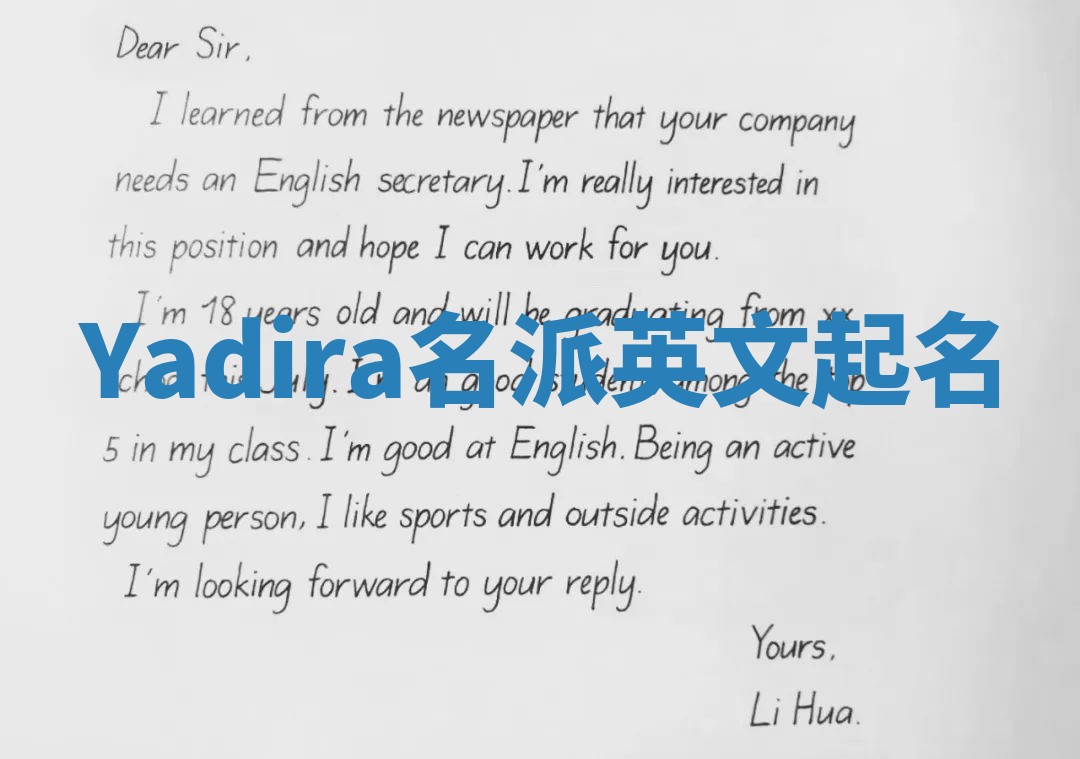 Dear Sir,
I learned from the newspaper that your company
needs an English secretary. I'm really interested in
this position and hope I can work for you.
I'm 18 years old and will be graduating from xx
Yadira名派英文起名
this July. I'm a good student among the top
5 in my class. I'm good at English. Being an active
young person, I like sports and outside activities.
I'm looking forward to your reply.
Yours,
Li Hua.